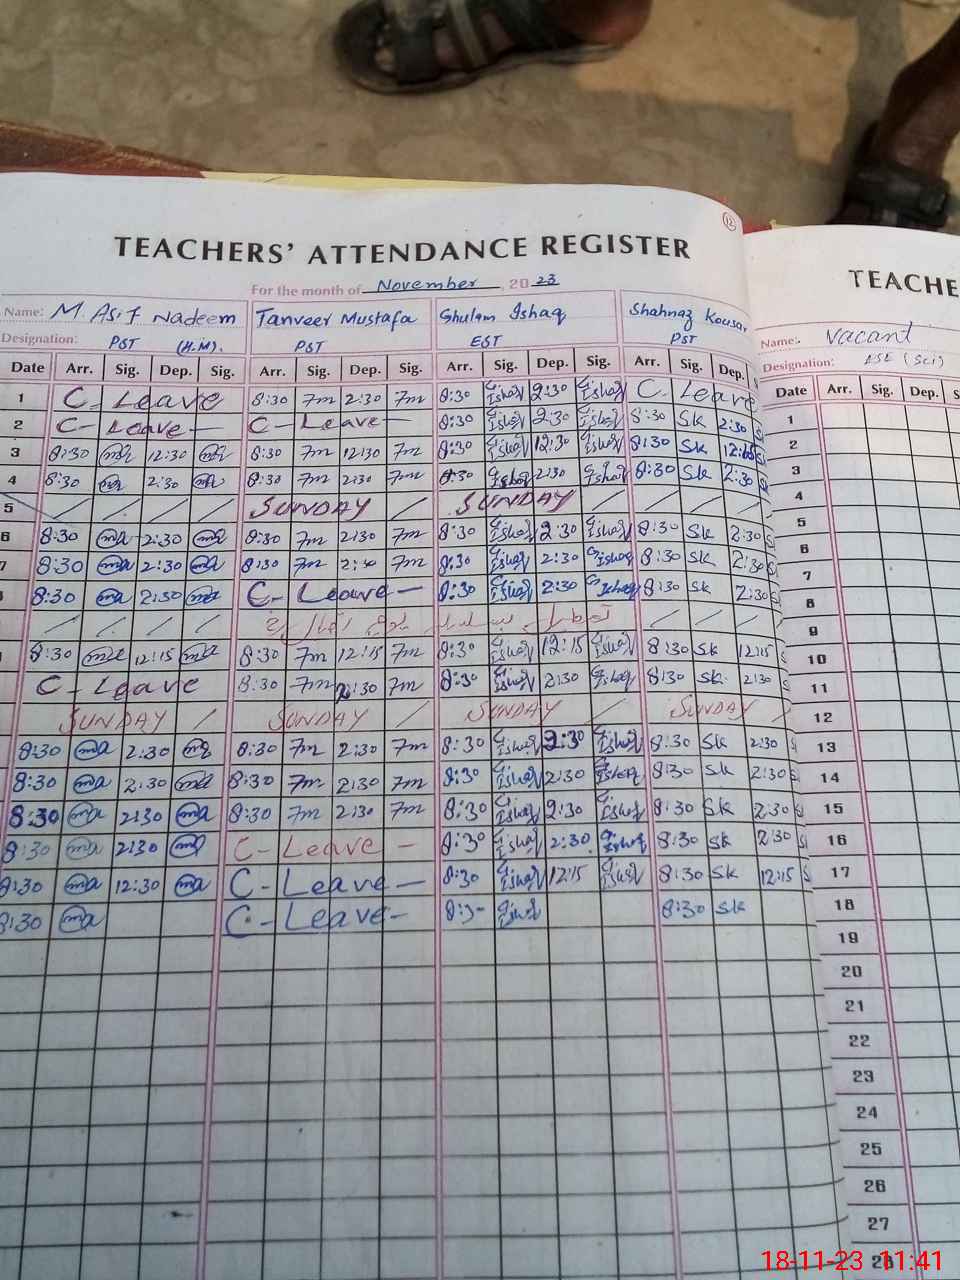 12
TEACHERS' ATTENDANCE REGISTER
For the month of November, 2023
Name: M. Asif Nadeem Tanveer Mustafa Ghulam Ishaq Shahnaz Kousar
Designation: PST (H.M). PST EST PST
Date Arr. Sig. Dep. Sig. Arr. Sig. Dep. Sig. Arr. Sig. Dep. Sig. Arr. Sig. Dep. S
1 C- Leave 8:30 7m 2:30 7m 8:30 Ishaq 2:30 Ishaq C- Leave
2 C- Leave - C- Leave - 8:30 Ishaq 2:30 Ishaq 8:30 Sk 2:30
3 8:30 ma 12:30 ma 8:30 7m 12:30 7m 8:30 Ishaq 12:30 Ishaq 8:30 Sk
4 8:30 ma 2:30 ma 8:30 7m 2:30 7m 8:30 Ishaq 2:30 Ishaq 8:30 Sk 2:30
5 / / / / SUNDAY / SUNDAY / / / /
6 8:30 ma 2:30 ma 8:30 7m 2:30 7m 8:30 Ishaq 2:30 Ishaq 8:30 Sk 2:30
7 8:30 ma 2:30 ma 8:30 7m 2:30 7m 8:30 Ishaq 2:30 Ishaq 8:30 Sk 2:30
8:30 ma 2:30 ma C- Leave - 8:30 Ishaq 2:30 Ishaq 8:30 Sk 2:30
/ / / / / / /
8:30 ma 12:15 ma 8:30 7m 12:15 7m 8:30 Ishaq 12:15 Ishaq 8:30 Sk 12:15
C - Leave 8:30 7m 2:30 7m 8:30 Ishaq 2:30 Ishaq 8:30 Sk 2:30
SUNDAY / SUNDAY / SUNDAY / SUNDAY /
8:30 ma 2:30 ma 8:30 7m 2:30 7m 8:30 Ishaq 2:30 Ishaq 8:30 Sk 2:30
8:30 ma 2:30 ma 8:30 7m 2:30 7m 8:30 Ishaq 2:30 Ishaq 8:30 Sk 2:30
8:30 ma 2:30 ma 8:30 7m 2:30 7m 8:30 Ishaq 2:30 Ishaq 8:30 Sk 2:30
8:30 ma 2:30 ma C- Leave - 8:30 Ishaq 2:30 Ishaq 8:30 Sk 2:30
8:30 ma 12:30 ma C- Leave - 8:30 Ishaq 12:15 Ishaq 8:30 Sk 12:15
8:30 ma C- Leave- 8:3- Ishaq 8:30 Sk
TEACHE
Name: Vacant
Designation: ESE (Sci)
Date Arr. Sig. Dep. S
1
2
3
4
5
6
7
8
9
10
11
12
13
14
15
16
17
18
19
20
21
22
23
24
25
26
27
28
18-11-23 11:41